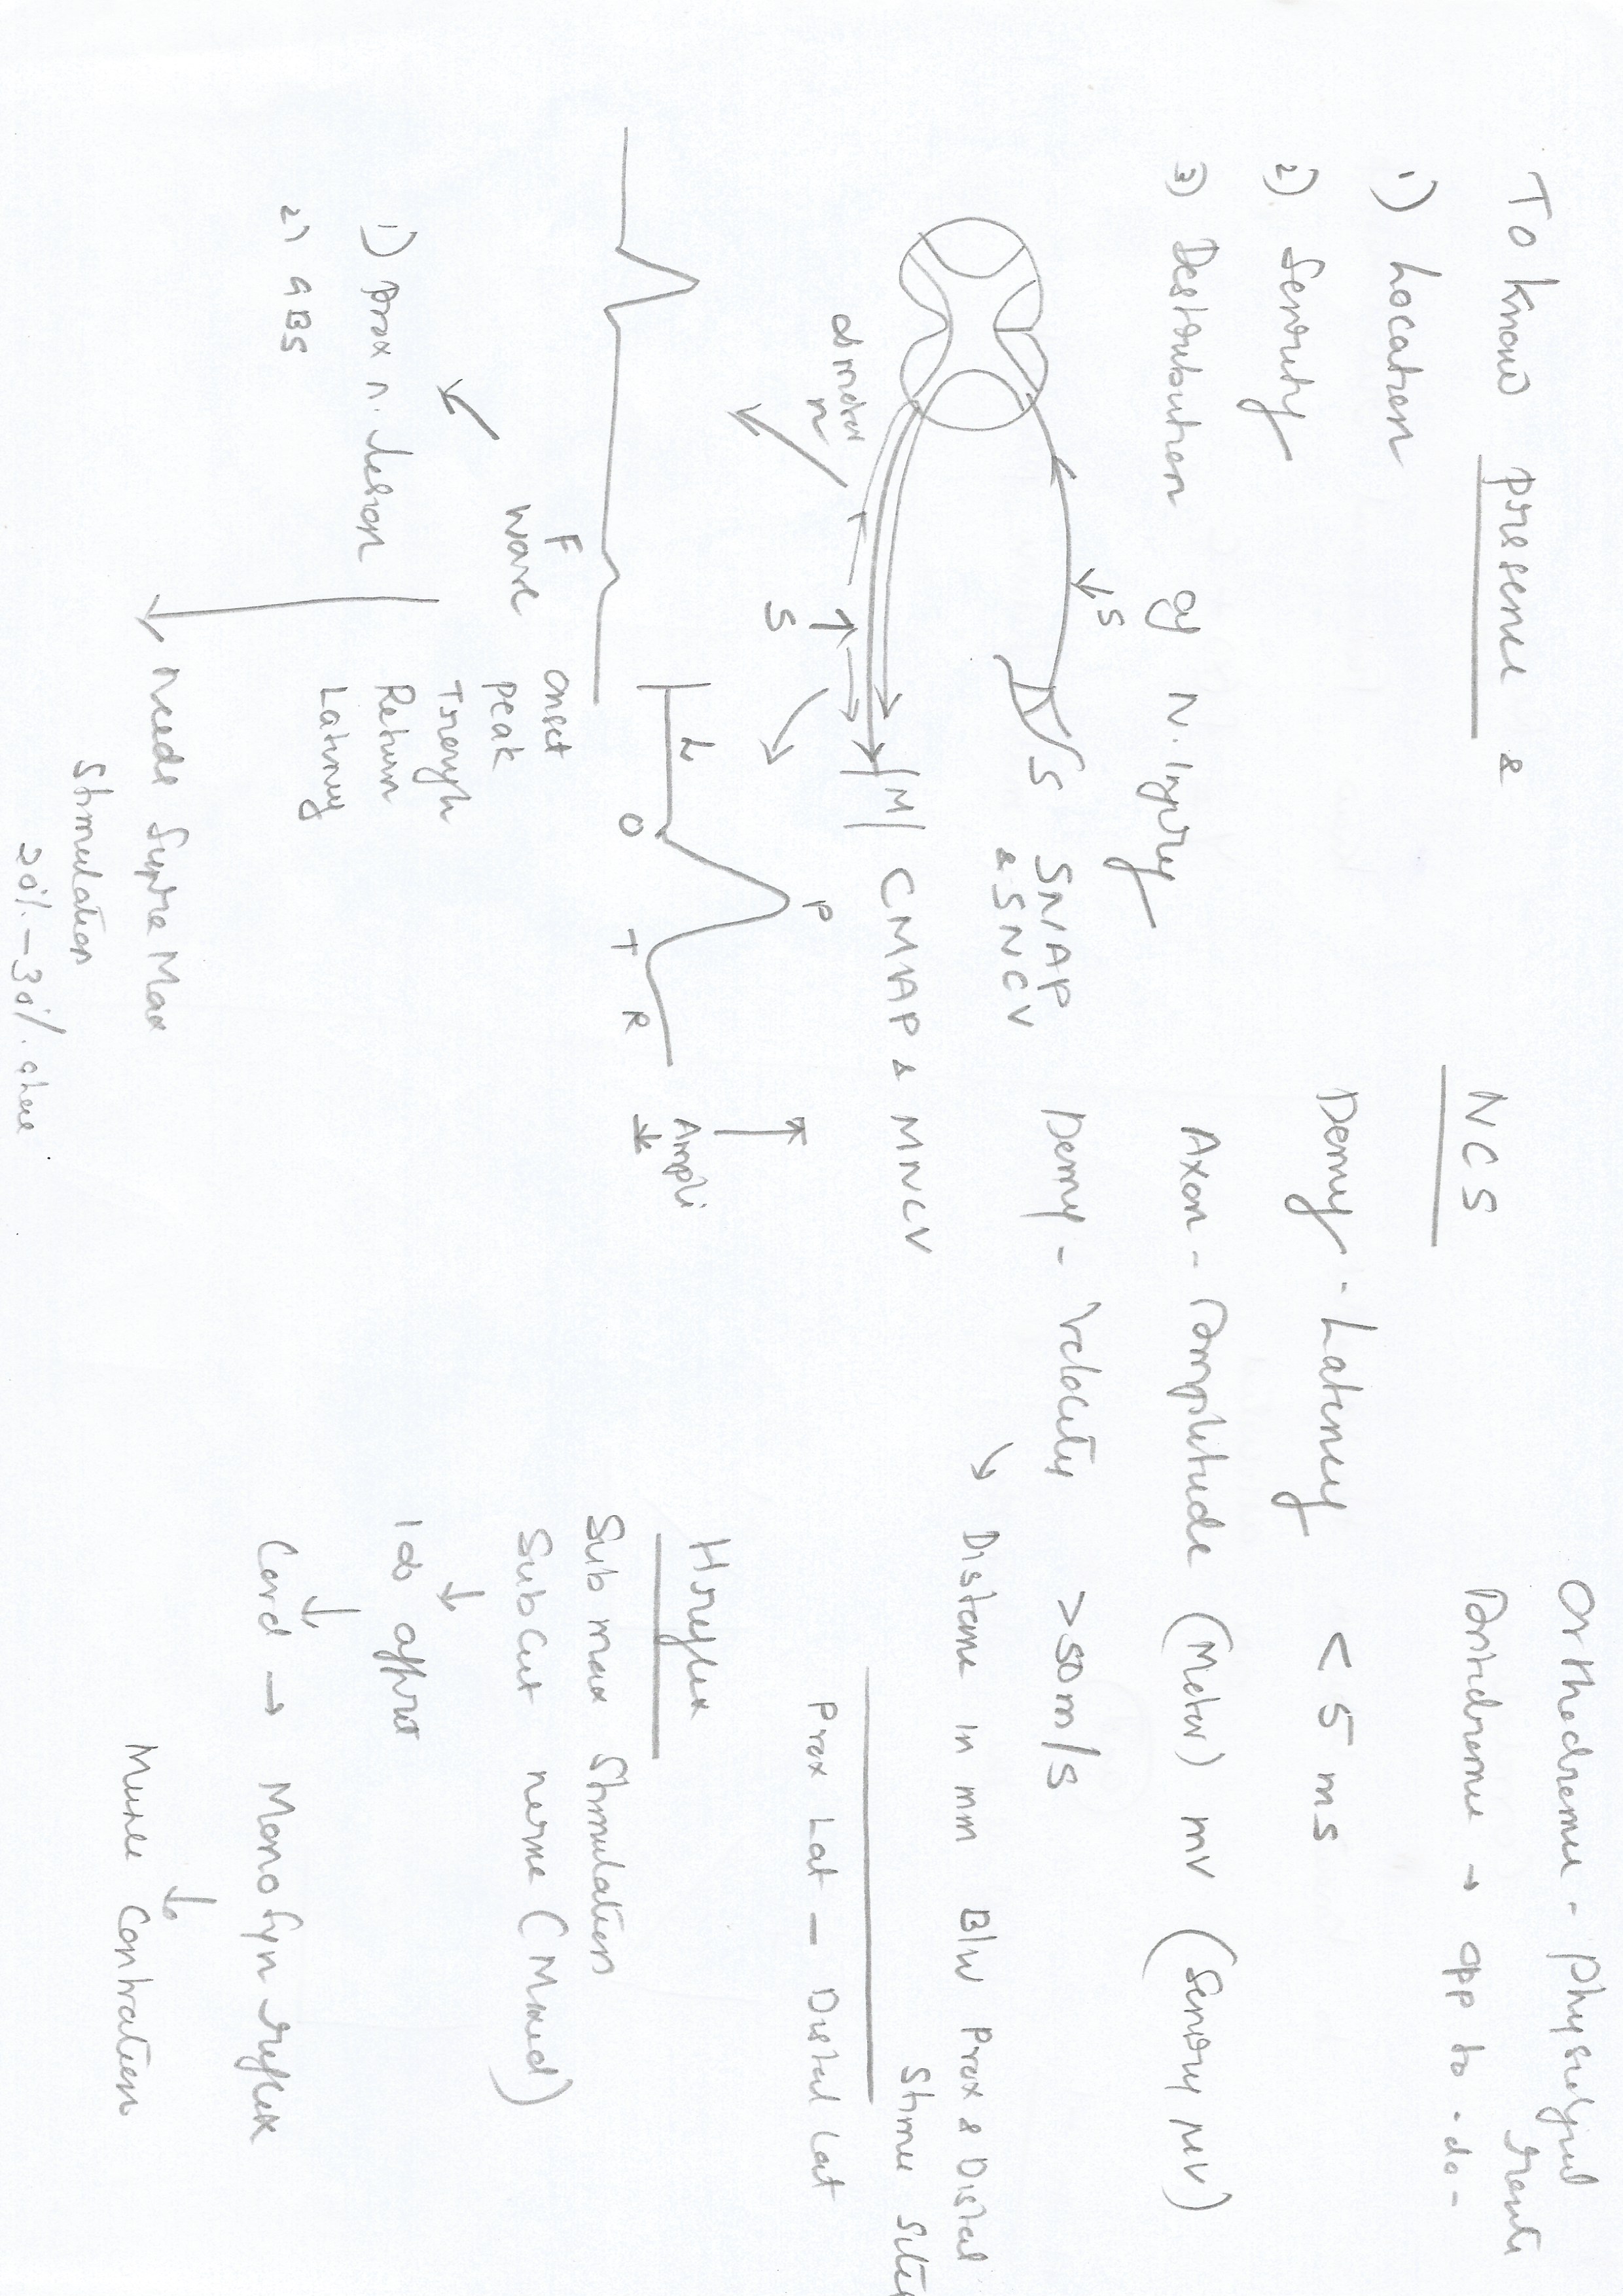 To know presence &
1) Location
2) Severity
3) Distribution of N. Injury
NCS
Orthodromic - physiological
Antidromic → opp to - do -
Demy - Latency < 5 ms
Axon - Amplitude (Motor) mV (Sensory μV)
Demy - Velocity > 50 m/s
Distance in mm B/w Prox & Distal
Stim Site
Prox Lat - Distal Lat
S
S
SNAP
& SNCV
M
CMAP & MNCV
α motor
n
S
L
O
P
T
R
Ampli
F
wave
onset
peak
Trough
Return
Latency
1) prox n. lesion
2) GBS
needs Supra Max
Stimulation
20% - 30% above
H reflex
Sub max Stimulation
Sub Cut nerve (Mixed)
↓
↓
Cord → Mono Syn reflex
↓
Muscle Contraction